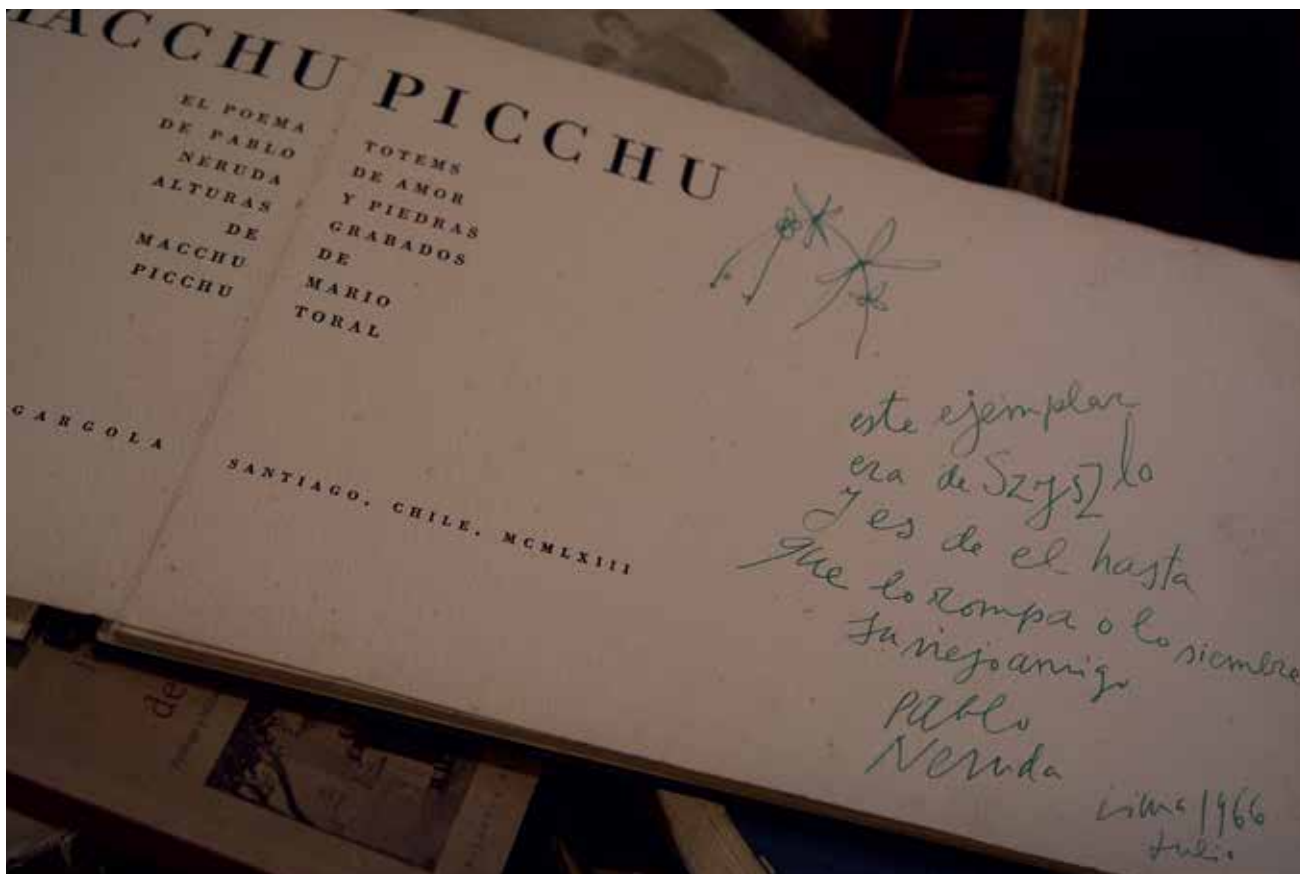 MACCHU PICCHU
EL POEMA
DE PABLO
NERUDA
ALTURAS
DE
MACCHU
PICCHU
TOTEMS
DE AMOR
Y PIEDRAS
GRABADOS
DE
MARIO
TORAL
GARGOLA
SANTIAGO, CHILE, MCMLXIII
este ejemplar
era de Szyszlo
y es de el hasta
que lo rompa o lo siembre
su viejo amigo
Pablo
Neruda
Lima 1966
Julio
de